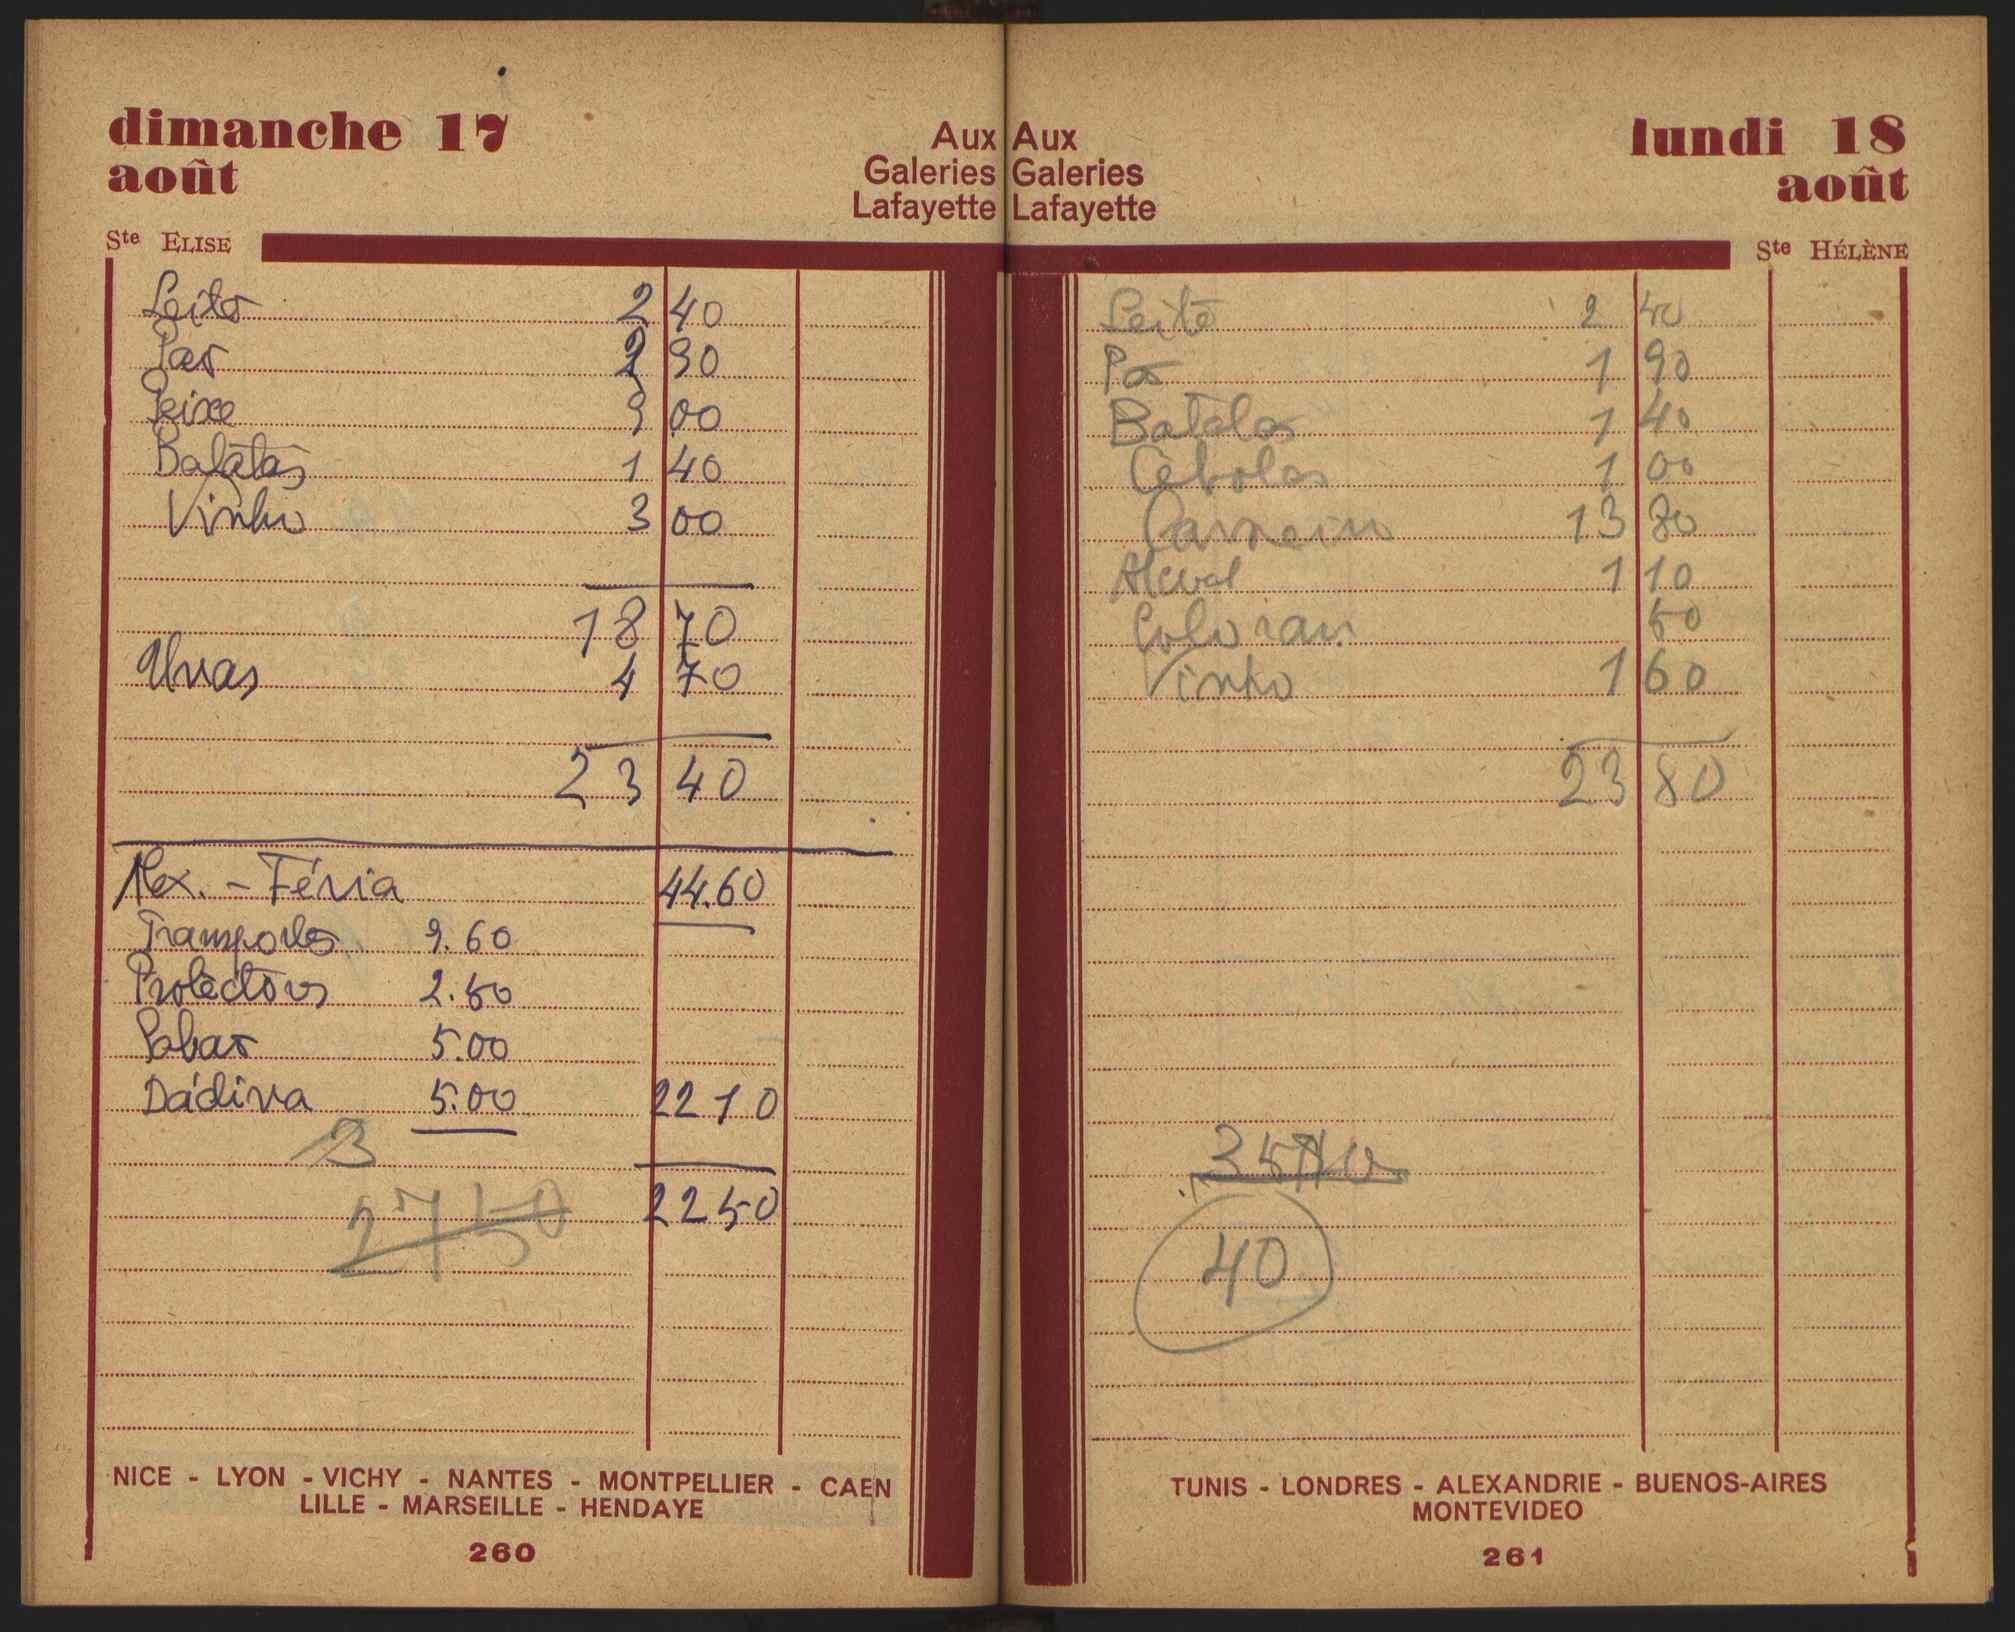 dimanche 17
août
Aux
Galeries
Lafayette
Ste ELISE
Leite 2 40
Pão 2 90
Peixe 9 00
Batatas 1 40
Vinho 3 00
18 70
Uvas 4 70
23 40
Alex. - Féria 44.60
Transportes 9.60
Protectors 2.50
Sabão 5.00
Dádiva 5.00 22 10
3
27 50 22 50
NICE - LYON - VICHY - NANTES - MONTPELLIER - CAEN
LILLE - MARSEILLE - HENDAYE
260
lundi 18
août
Aux
Galeries
Lafayette
Ste HÉLÈNE
Leite 2 40
Pão 1 90
Batatas 1 40
Cebolas 1 00
Carneiro 13 80
Alcool 1 10
50
Vinho 1 60
23 80
40
TUNIS - LONDRES - ALEXANDRIE - BUENOS-AIRES
MONTEVIDEO
261